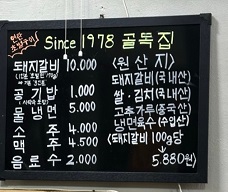 Since 1978 골목집
돼지갈비 10.000
공기밥 1.000
물냉면 5.000
소주 4.000
맥주 4.500
음료수 2.000
<원산지>
돼지갈비(국내산)
쌀·김치(국내산)
고추가루(중국산)
냉면육수(수입산)
<돼지갈비 100g당
5.880원>